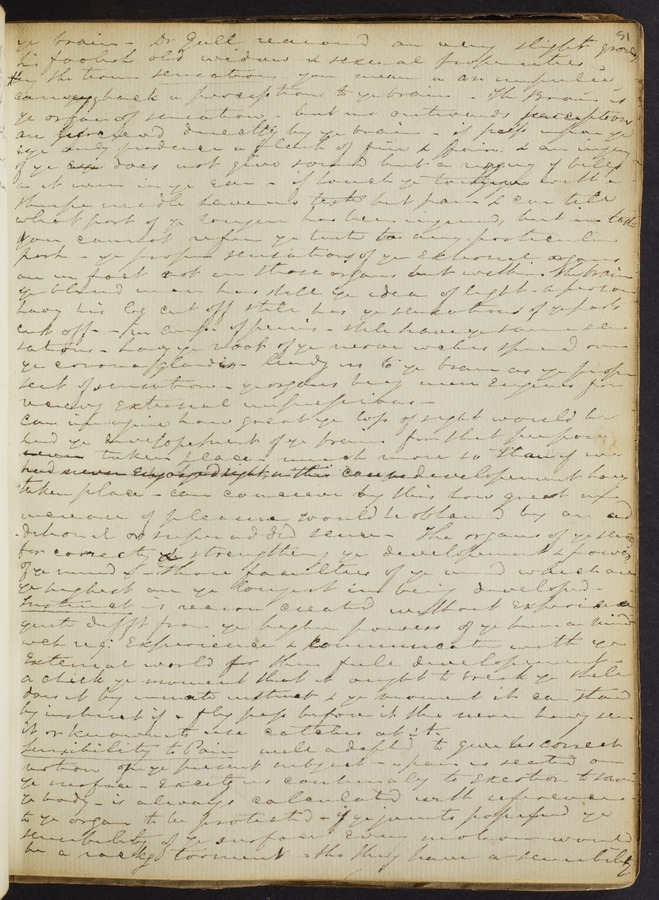 51
ye brain - Dr Gall reasoned on very slight grounds
his foolish old widow & sexual propensities
By the term sensation you mean a an impulse
carrying back a perception to ye brain - The Brain is
ye organ of sensation, but no outwards perceptions
are directly by ye brain - if pass upon ye
eye only produce a fire & pain & an injury
of ye ear does not give sound but a ringing of bells
as it were in ye ear - if touch ye tongue with a
sharp needle have no taste but pain & can tell
what part of ye tongue has been injured, but in taste
you cannot refer ye taste to any particular
part - ye proper sensations of ye External organs
are in fact not in those organs but within the brain
ye blind man has still ye idea of light - a person
having his leg cut off still has ye sensations of ye part
cut off - in amp. of penis - still have ye same sen
sations - having ye root of ye nerve wch is spread over
ye corona glandis - leading us to ye brain as ye proper
seat of sensation - ye organs being mere Engines for
receiving External impressions -
can imagine how great ye loss of sight would be
had ye developement of ye brain for that purpose
never taken place - much more so than if we
had never enjoyed sight, in this case no developement having
taken place - can conceive by this how great an
increase of pleasure would be obtained by an ad
ditional or superadded sense - The organs of ye senses
for correctg & strengthening ye developement & powers
of ye mind & - those faculties of ye mind which are
ye highest are ye longest in being developed -
Instinct - is reason created without Experience
quite difft from ye higher powers of ye human mind
wch reqe Experience & communicatn with ye
External world for their full developement -
a chick ye moment that it ought to break ye shell
does it by innate instinct & ye moment it can stand
by instinct if a fly pass before it tho never having seen
it or knowing its use catches at it.
Sensibility to Pain well adapted to give us correct
notion of ye present subject - pain is seated on
ye surface - Exciting us continualy to Exertion to save
ye body - is always calculated with reference
to ye organ to be protected - if ye joints possessed ye
sensibility of ye surface Every motion would
be a rackg torment - tho they have a sensibility